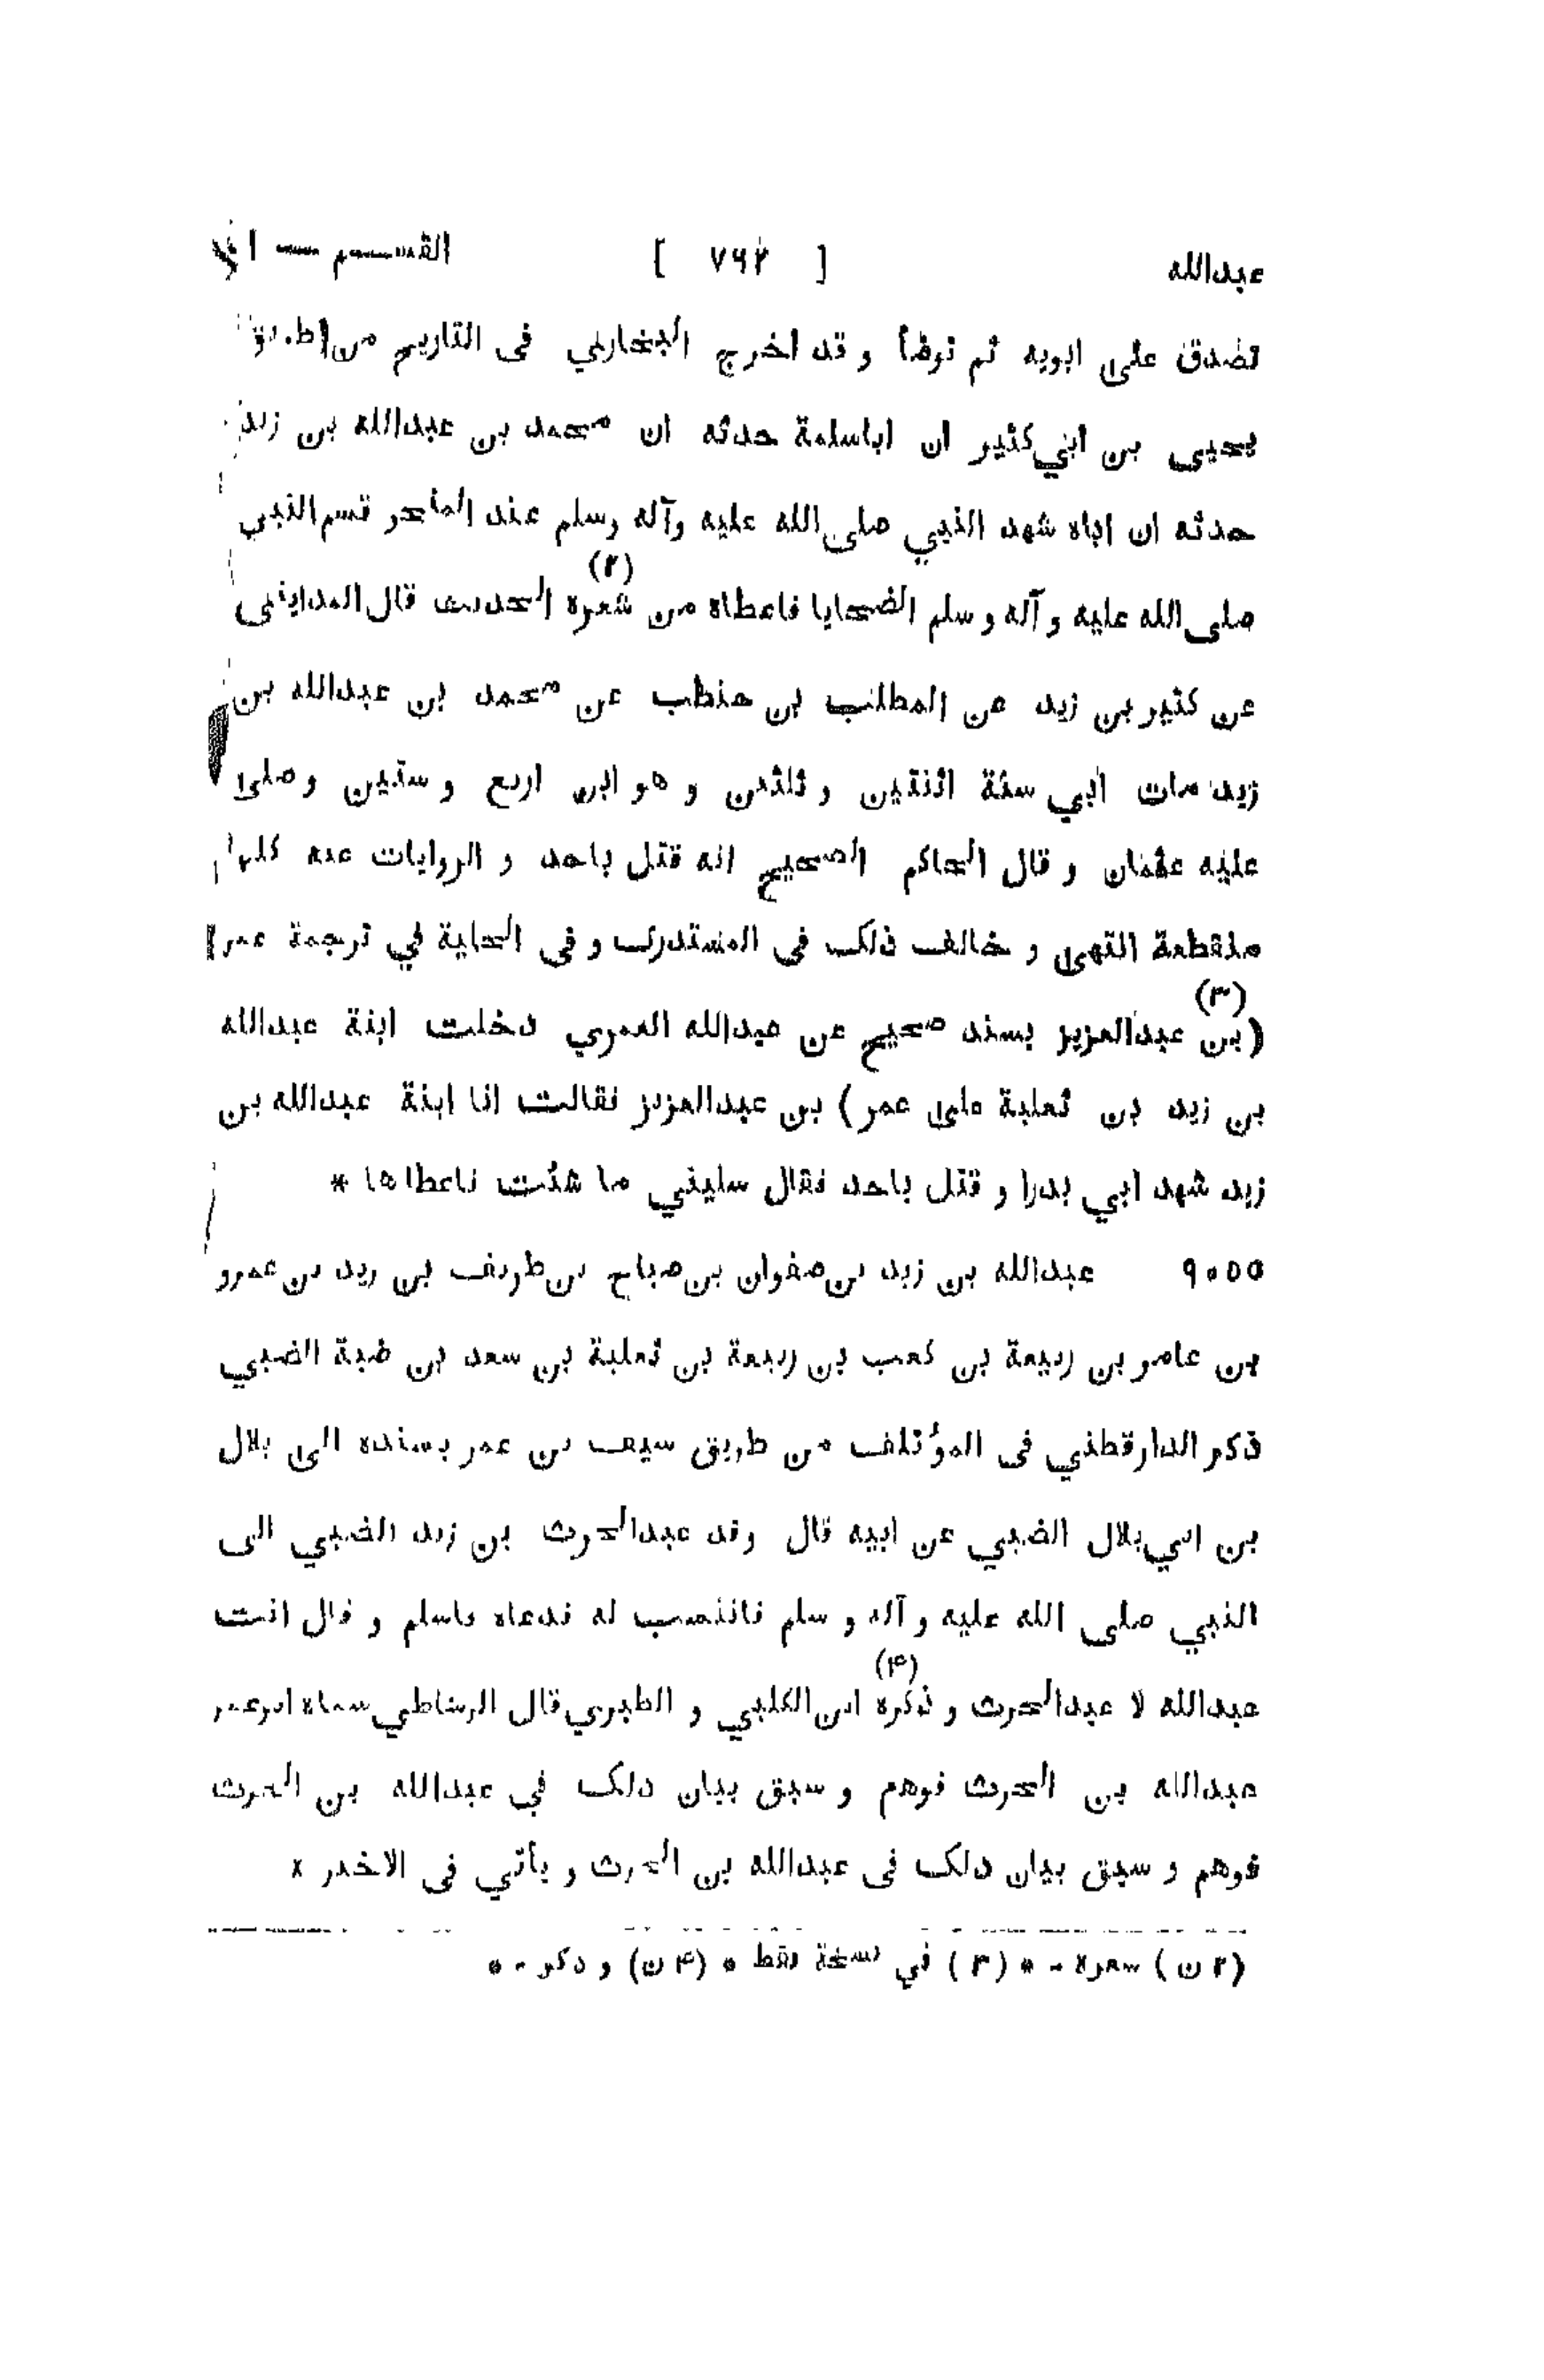 عبدالله [ ٧٦٢ ] القسم —
تصدق على ابويه ثم توضأ و قد اخرج البخاري فى التاريخ من طريق
يحيى بن ابي كثير ان اباسلمة حدثه ان محمد بن عبدالله بن زيد
حدثه ان اباه شهد النبي صلى الله عليه وآله وسلم عند المنحر قسم النبي
صلى الله عليه و آله و سلم الضحايا فاعطاه من شعره (٢) الحديث قال المدايني
عن كثير بن زيد عن المطلب بن حنطب عن محمد بن عبدالله بن
زيد مات ابي سنة اثنتين و ثلثين و هو ابن اربع و ستين و صلى
عليه عثمان و قال الحاكم الصحيح انه قتل باحد و الروايات عنه كلها
منقطعة انتهى و خالف ذلك فى المستدرك و فى الحلية في ترجمة عمر
(٣) (بن عبدالعزيز بسند صحيح عن عبدالله العمري دخلت ابنة عبدالله
بن زيد بن ثعلبة على عمر ) بن عبدالعزيز فقالت انا ابنة عبدالله بن
زيد شهد ابي بدرا و قتل باحد فقال سليني ما شئت فاعطاها *
٩٠٥٥ عبدالله بن زيد بن صفوان بن صباح بن طريف بن زيد بن عمرو
بن عامر بن ربيعة بن كعب بن ربيعة بن ثعلبة بن سعد بن ضبة الضبي
ذكر الدارقطني فى المؤتلف من طريق سيف بن عمر بسنده الى بلال
بن ابي بلال الضبي عن ابيه قال وفد عبدالحرث بن زيد الضبي الى
النبي صلى الله عليه و آله و سلم فانتسب له فدعاه فاسلم و قال انت
عبدالله لا عبدالحرث و ذكره (۴) ابن الكلبي و الطبري قال الرشاطي سماه ابوعمر
عبدالله بن الحرث فوهم و سبق بيان ذلك في عبدالله بن الحرث
فوهم و سبق بيان ذلك فى عبدالله بن الحرث و يأتي فى الاخير *
(٢ ن ) سعره - * (٣) في نسخة فقط * (۴ ن) و ذكر - *